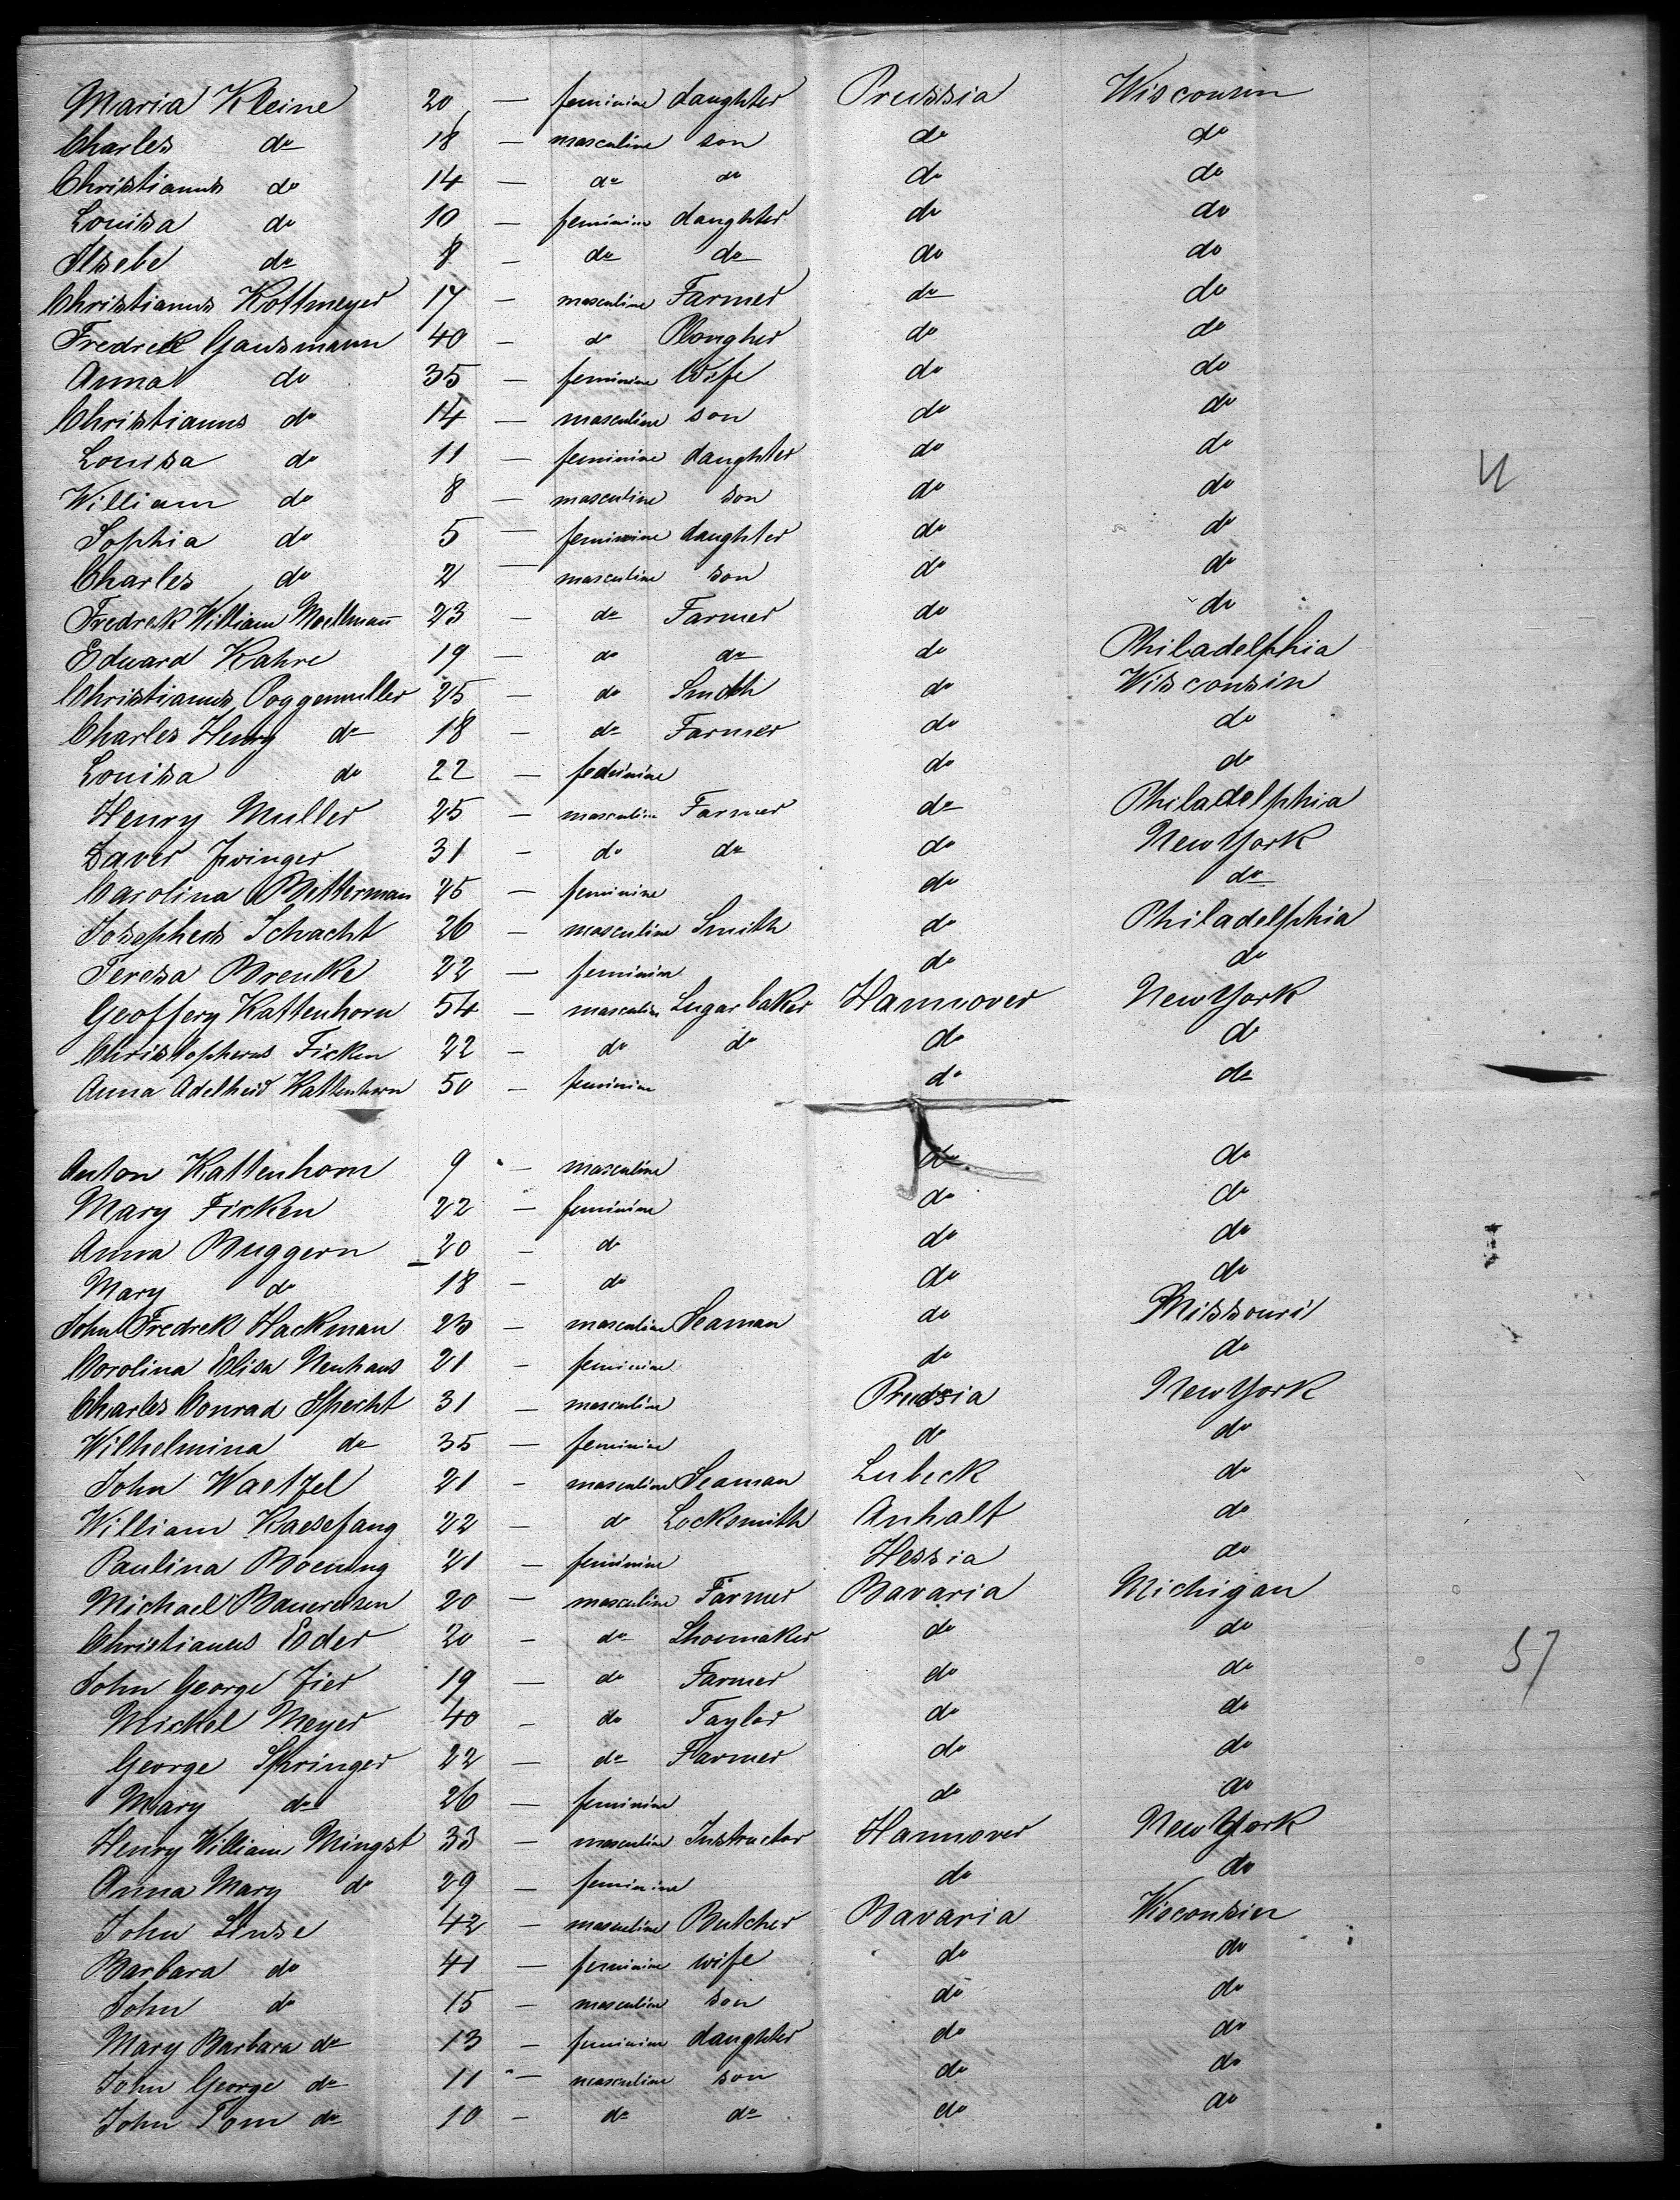 Maria Kleine 20 — feminine daughter Prussia Wisconsin
Charles do 18 — masculine son do do
Christianus do 14 — do do do do
Louisa do 10 — feminine daughter do do
Ilsebe do 8 — do do do do
Christianus Kottmeyer 17 — masculine Farmer do do
Fredrek Gausmann 40 — do Plougher do do
Anna do 35 — feminine Wife do do
Christianus do 14 — masculine son do do
Louisa do 11 — feminine daughter do do
William do 8 — masculine son do do
Sophia do 5 — feminine daughter do do
Charles do 2 — masculine son do do
Fredrek William Moellmann 23 — do Farmer do do
Eduard Kahre 19 — do do do Philadelphia
Christianus Poggemuller 25 — do Smith do Wisconsin
Charles Henry do 18 — do Farmer do do
Louisa do 22 — feminine do do
Henry Muller 25 — masculine Farmer do Philadelphia
Xaver Zwinger 31 — do do do New York
Carolina Bitterman 25 — feminine do do
Josephus Schacht 26 — masculine Smith do Philadelphia
Teresa Brenke 22 — feminine do do
Geoffery Kattenhorn 54 — masculine Sugarbaker Hannover New York
Christopherus Ficken 22 — do do do do
Anna Adelheid Kattenhorn 50 — feminine do do
Anton Kattenhorn 9 — masculine do do
Mary Ficken 22 — feminine do do
Anna Buggern 20 — do do do
Mary do 18 — do do do
John Fredrek Hackman 23 — masculine Seaman do Missouri
Carolina Elisa Neuhaus 21 — feminine do do
Charles Conrad Specht 31 — masculine Prussia New York
Wilhelmina do 35 — feminine do do
John Waetzel 21 — masculine Seaman Lubeck do
William Kaesefang 22 — do Locksmith Anhalt do
Paulina Boening 21 — feminine Hessia do
Michael Bauereisen 20 — masculine Farmer Bavaria Michigan
Christianus Eder 20 — do Shoemaker do do
John George Zier 19 — do Farmer do do
Michel Meyer 40 — do Taylor do do
George Springer 22 — do Farmer do do
Mary do 26 — feminine do do
Henry William Mingst 33 — masculine Instructor Hannover New York
Anna Mary do 29 — feminine do do
John Linse 42 — masculine Butcher Bavaria Wisconsin
Barbara do 41 — feminine wife do do
John do 15 — masculine son do do
Mary Barbara do 13 — feminine daughter do do
John George do 11 — masculine son do do
John Tom do 10 — do do do do
57